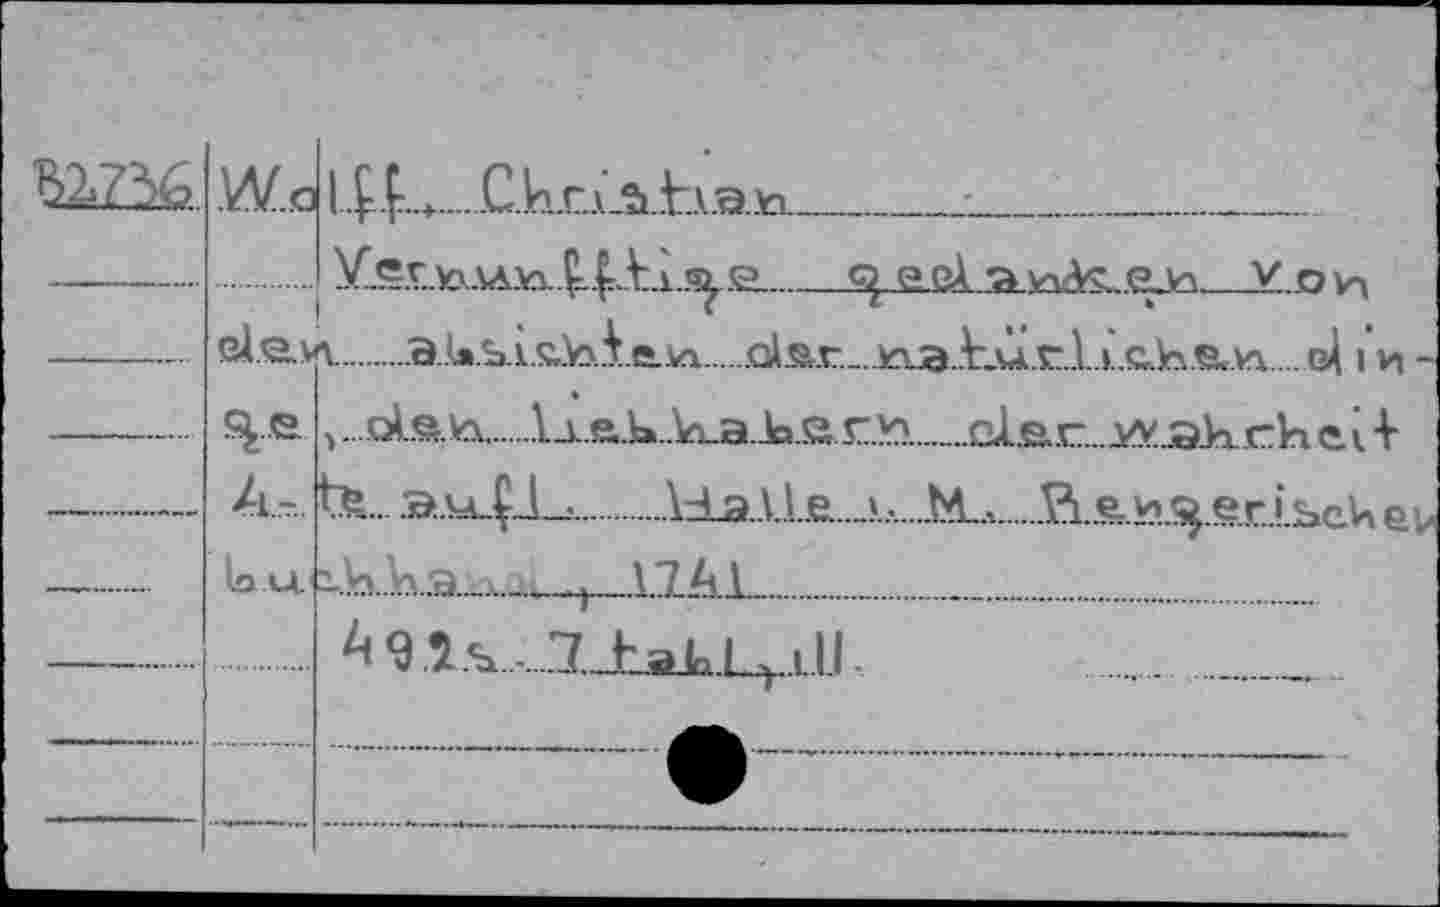 B2736 Wolff, Christian
Vernunfftige gedanken von
den absichten der natürlichen din-
ge, den liebhabern der wahrheit
4-te aufl. Halle i. M. Rengerischen
buchhandl, 1741
492s.-7 tabl, ill.